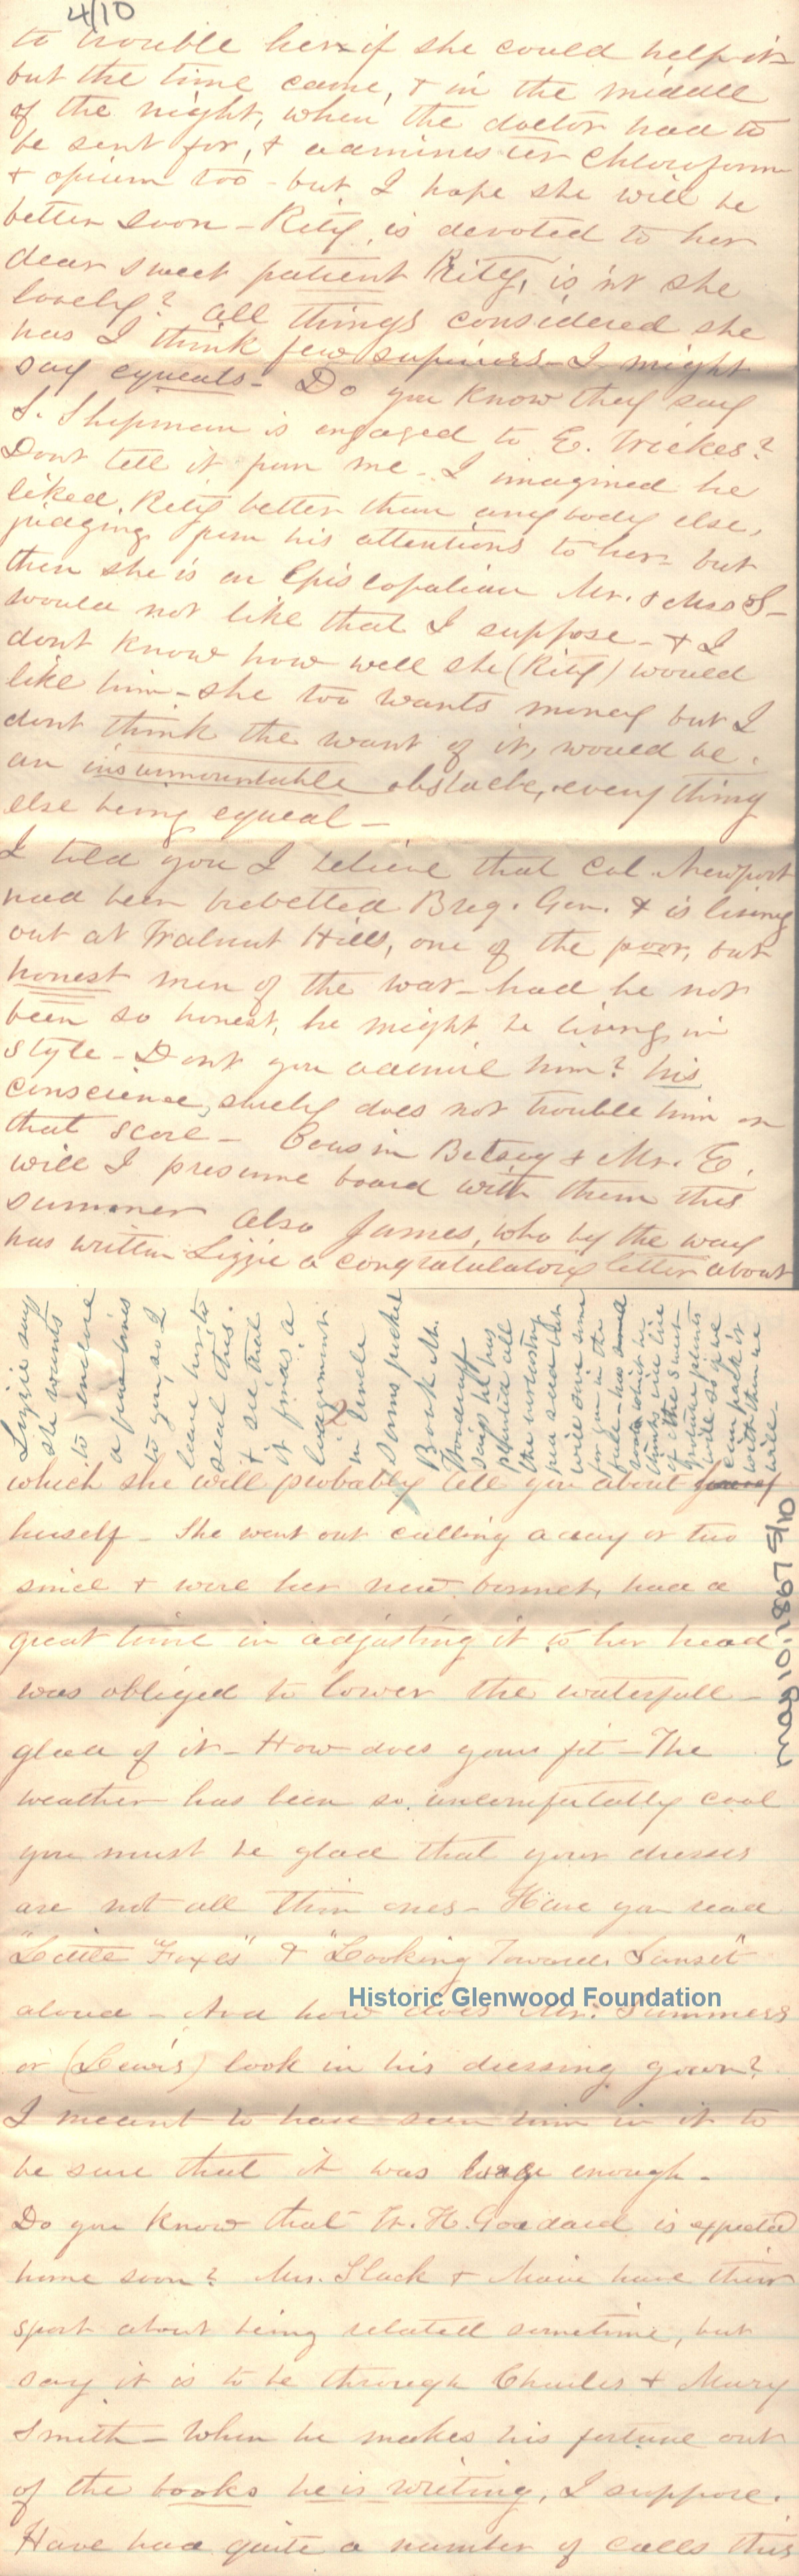 4/10
to trouble her if she could help it
but the time came, & in the middle
of the night, when the doctor had to
be sent for, & administer Chloroform
& opium too - but I hope she will be
better soon - Kitty, is devoted to her
dear sweet patient Kitty, is'nt she
lovely? All things considered she
has I think few superiors - I might
say equeals - Do you know they say
S. Shipman is engaged to E. Wickes?
Dont tell it from me - I imagined he
liked Kitty better than any body else,
judging from his attentions to her - but
then she is an Episcopalian Mr. & Mrs S -
would not like that I suppose - & I
dont know how well she (Kitty) would
like him - she too wants money but I
dont think the want of it, would be
an insurmountable obstacle, every thing
else being equeal -
I told you I believe that Col. Newport
had been brebetted Brig. Gen. & is living
out at Walnut Hills, one of the poor, but
honest men of the war - had he not
been so honest, he might be living in
style - Dont you admire him? his
conscience, surely does not trouble him on
that score - Cousin Betsey & Mr. E.
will I presume board with them this
summer also James, who by the way
has written Lizzie a congratulatory letter about
Lizzie says
she wants
to enclose
a few lines
to you, so I
leave her to
seal this.
& see that
it finds a
lodgement
in Uncle
Sams pocket
Book Mr.
Woodruff
says he has
planted all
the
will save some
for you in the
thinks will live
if the sweet
potatoe plants
will so if we
can pack it
with them we
will -
which she will probably tell you about
herself - She went out calling a day or two
since & wore her new bonnet, had a
great time in adjusting it to her head
was obliged to lower the waterfall -
glad of it - How does yours fit - The
weather has been so uncomfortably cool
you must be glad that your dresses
are not all thin ones - Have you read
"Little Foxes" & "Looking Toward Sunset"
aloud - And how does Mr. Summers
or (Lewis) look in his dressing gown?
I meant to have seen him in it to
be sure that it was large enough -
Do you know that W. H. Goddard is expected
home soon? Mrs. Slack & Marie have their
sport about being related sometime, but
say it is to be through Charles & Mary
Smith - When he makes his fortune out
of the books he is writing, I suppose.
Have had quite a number of calls this
Historic Glenwood Foundation